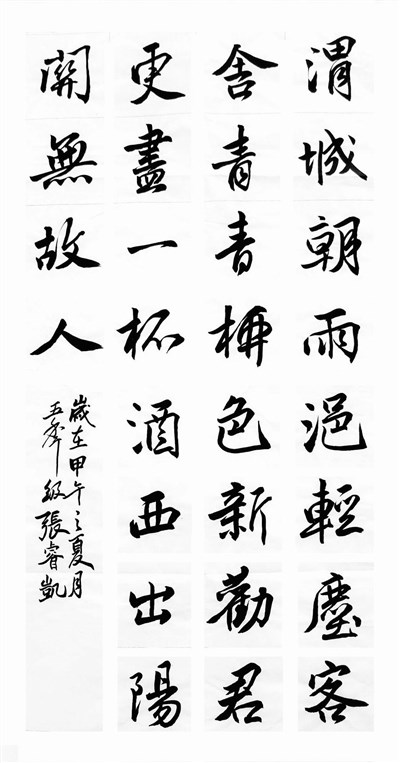 渭城朝雨浥輕塵客
舍青青柳色新勸君
更盡一杯酒西出陽
關無故人
歲在甲午之夏月
五年級張睿凱